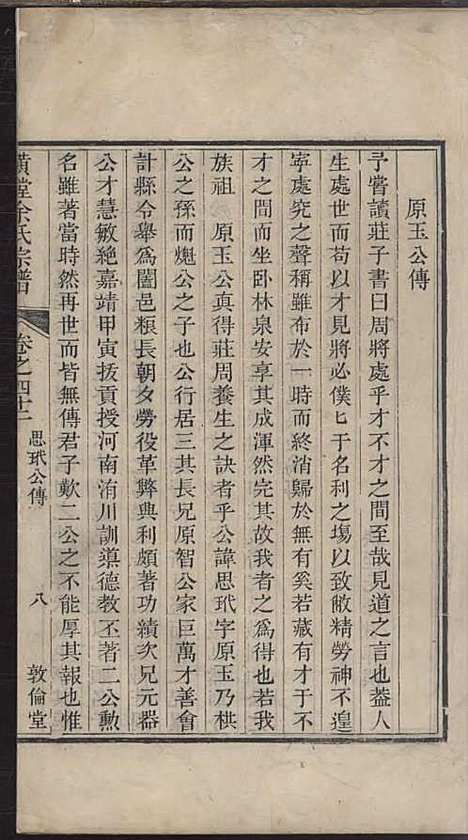 原玉公傳
予嘗讀莊子書曰周將處乎才不才之間至哉見道之言也葢人
生處世而苟以才見將必僕匕于名利之塲以致敝精勞神不遑
寧處究之聲稱雖布於一時而終消歸於無有奚若藏有才于不
才之間而坐卧林泉安享其成渾然完其故我者之為得也若我
族祖　原玉公真得莊周養生之訣者乎公諱思玳字原玉乃栱
公之孫而㷡公之子也公行居三其長兄原智公家巨萬才善會
計縣令舉為闔邑粮長朝夕勞役革弊興利頗著功績次兄元器
公才慧敏絶嘉靖甲寅拔貢授河南洧川訓導德教丕著二公勲
名雖著當時然再世而皆無傳君子歎二公之不能厚其報也惟
堂余氏宗譜
卷之四十二
思玳公傳
八
敦倫堂